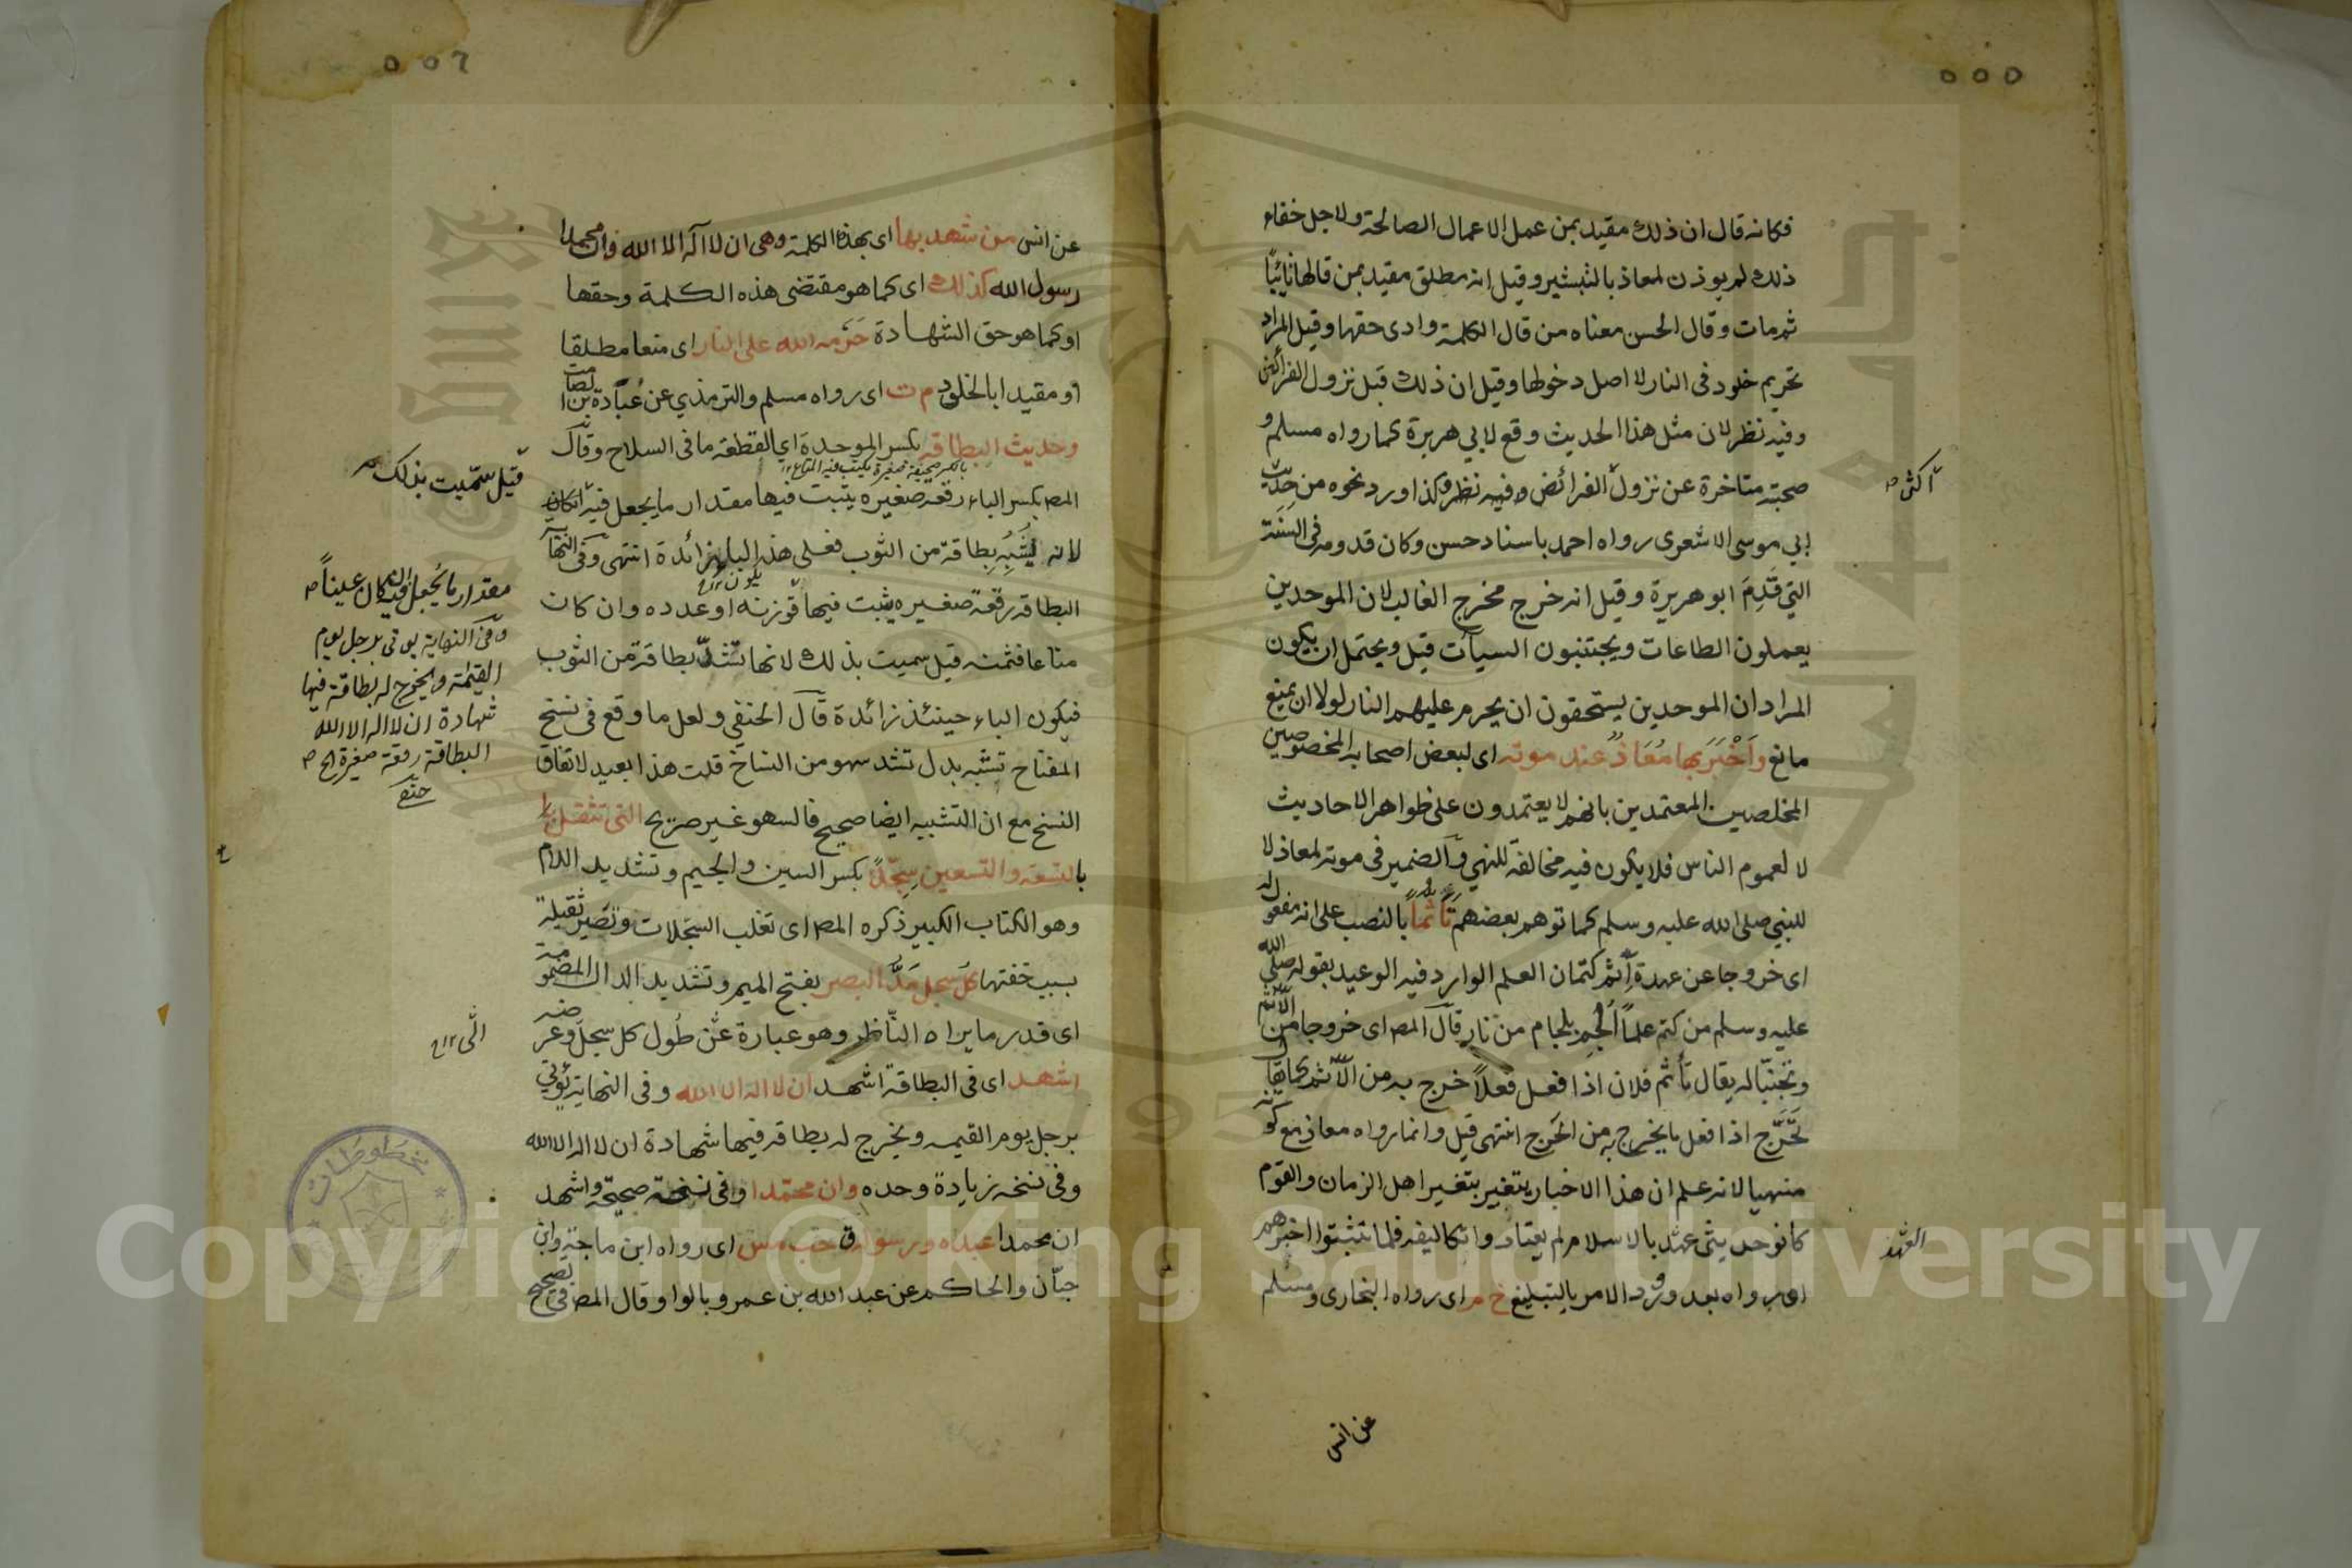 ٥٥٥
فكانه قال ان ذلك مقيد بمن عمل الاعمال الصالحة ولاجل خفاء
ذلك لم يوذن لمعاذ بالتبشير وقيل انه مطلق مقيد بمن قالها تائبًا
ثم مات وقال الحسن معناه من قال الكلمة وادى حقها وقيل المراد
تحريم خلود فى النار لا اصل دخولها وقيل ان ذلك قبل نزول الفرائض
وفيه نظر لان مثل هذا الحديث وقع لابي هريرة كما رواه مسلم و
صحبته متاخرة عن نزول الفرائض وفيه نظر وكذا ورد نحوه من حديث
اكثر
ابي موسى الاشعرى رواه احمد باسناد حسن وكان قدومه فى السنة
التي قَدِمَ ابو هريرة وقيل انه خرج مخرج الغالب لان الموحدين
يعملون الطاعات ويجتنبون السيآت قيل ويحتمل ان يكون
المراد ان الموحدين يستحقون ان يحرم عليهم النار لولا ان يمنع
مانع واَخْبَرَ بها مُعَاذٌ عند موته اى لبعض اصحابه المخصوصين
المخلصين المعتمدين بانهم لا يعتمدون على ظواهر الاحاديث
لا لعموم الناس فلا يكون فيه مخالفة للنهي والضمير فى موته لمعاذ لا
للنبي صلى الله عليه وسلم كما توهم بعضهم تَأَثُّماً بالنصب على انه مفعول له
اى خروجا عن عهدة اثم كتمان العلم الوارد فيه الوعيد بقوله صلى الله
عليه وسلم من كتم علماً اُلْجِمَ بلجام من نار قال المص اى خروجا من الاثم
وتجنبا له يقال تأثم فلان اذا فعل فعلاً خرج به من الاثم كما يقال
تَحَرَّج اذا فعل ما يخرج به من الحَرَج انتهى قيل وانما رواه معاذ مع كونه
منهيا لانه علم ان هذا الاخبار يتغير بتغير اهل الزمان والقوم
كانوا حديثى عهد بالاسلام لم يعتادوا تكاليفه فلما تثبتوا اخبرهم
العهد
او رواه بعد ورود الامر بالتبليغ خ م اى رواه البخارى ومسلم
عن انس
٥٥٦
عن انس من شهد بها اى بهذه الكلمة وهى ان لا اله الا الله وان محمدا
رسول الله كذلك اى كما هو مقتضى هذه الكلمة وحقها
او كما هو حق الشهادة حَرَّمه الله على النار اى منعا مطلقا
او مقيدا بالخلود م ت اى رواه مسلم والترمذي عن عُبَادة بن الصامت
وحديث البطاقه بكسر الموحدة اي القطعه ما فى السلاح وقال
بالكسر صحيفة صغيرة يكتب فيه المتاع ١٢
المص بكسر الباء رقعه صغيره يثبت فيها مقدار ما يجعل فيه ان كان
قيل سمّيت بذلك
لانه يُشَبَّهُ بطاقة من الثوب فعلى هذا الباء زائدة انتهى وفى النهاية
البطاقه رقعة صغيره يثبت فيها وزنه او عدده وان كان
متاعا فثمنه قيل سميت بذلك لانها تشدّ بطاقة من الثوب
فيكون الباء حينئذ زائدة قال الحنفي ولعل ما وقع فى نسخ
المفتاح تشبه بدل تشد سهو من النساخ قلت هذا بعيد لاتفاق
النسخ مع ان التشبيه ايضا صحيح فالسهو غير صريح التى تثقل
مقدار ما يُجعل فيه ان كان عيناً
وفى النهاية يوتى برجل يوم
القيمة ويخرج له بطاقة فيها
شهادة ان لا اله الا الله
البطاقة رقعة صغيرة الخ
بالتسعة والتسعين سِجِلّاً بكسر السين والجيم وتشديد اللام
وهو الكتاب الكبير ذكره المص اى تغلب السجلات وتصير ثقيلة
بسبب خفتها كل سجل مَدُّ البصر بفتح الميم وتشديد الدال المضمومة
اى قدر ما يراه الناظر وهو عبارة عن طُول كل سجل وعرضه
اشهد اى فى البطاقة اشهد ان لا اله الا الله وفى النهاية يُؤتى
برجل يوم القيمه ويخرج له بطاقه فيها شهادة ان لا اله الا الله
وفى نسخه زيادة وحده وان محمدا وفى نسخة صحيحة واشهد
ان محمدا عبده ورسوله ق حب مس اى رواه ابن ماجة وابن
حبّان والحاكم عن عبد الله بن عمرو بالواو وقال المص فى تصحيح
مخطوطات
Copyright © King Saud University